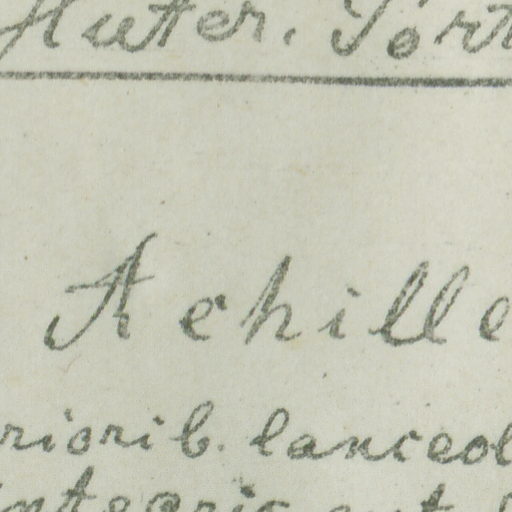 Huter, Port
Achille
riorib. lanceol
integris aut